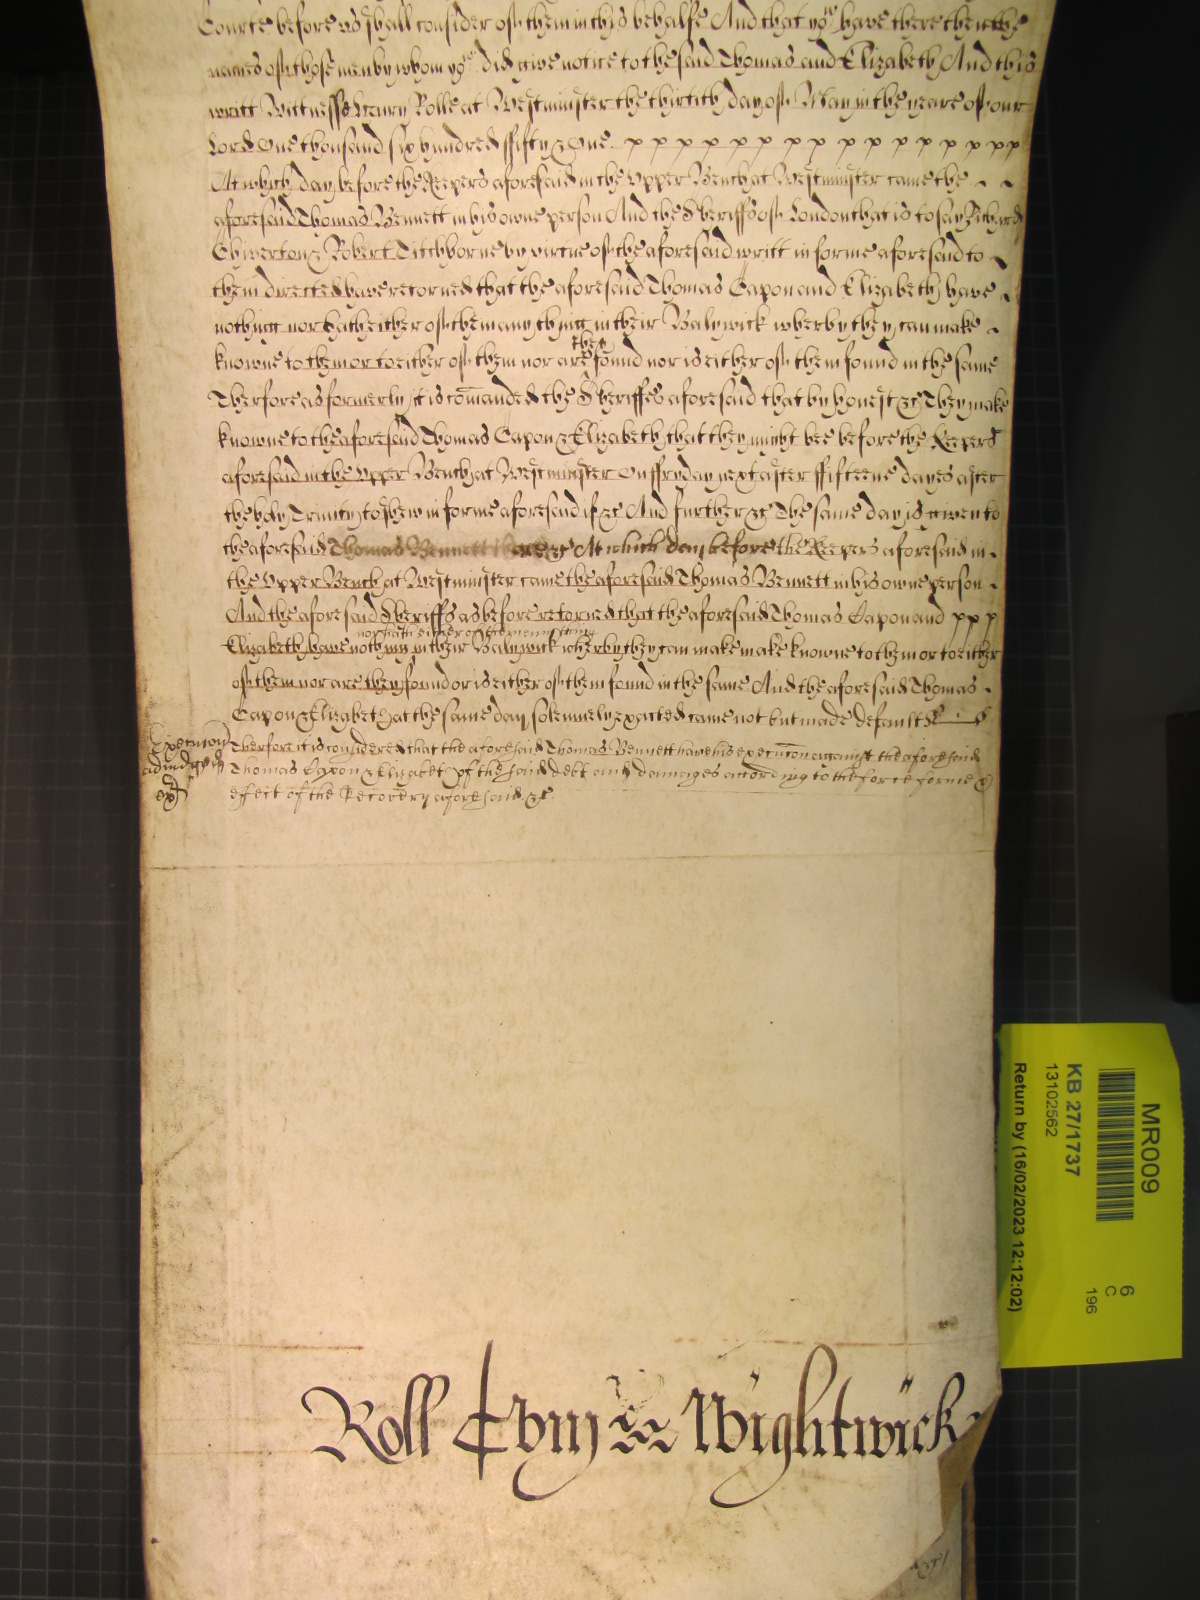 Courte before us shall consider of them in this behalfe And that yow have there then the
names of those men by whom yow did give notice to the said Thomas and Elizabeth And this
writt Wittnesse Henry Rolle at Westminster the thirtith day of May in the yeare of our
Lord One thousand six hundred ffifty & One p p p p p p p p p p p p p p p
At which day before the Keepers aforesaid in the Upper Bench at Westminster came the
aforesaid Thomas Bennett in his owne person And the Sheriffs of London that is to say Richard
Chiverton & Robert Titchborne by virtue of the aforesaid writt in forme aforesaid to
them directed have retorned that the aforesaid Thomas Capon and Elizabeth have
nothing nor hath either of them any thing in their Balywick wherby they can make
knowne to them or to either of them nor are they found nor is either of them found in the same
Therfore as formerly it is comanded the Sheriffes aforesaid that by honest &c They make
knowne to the aforesaid Thomas Capon & Elizabeth that they might bee before the Keepers
aforesaid in the Upper Bench at Westminster On ffryday next after ffifteene dayes after
the holy Trinity to shew in forme aforesaid if &c And further &c The same day is given to
the aforesaid Thomas Bennett &c At which day before the Keepers aforesaid in
the Upper Bench at Westminster came the aforesaid Thomas Bennett in his owne person
And the aforesaid Sheriffs as before retorned that the aforesaid Thomas Capon and p p p
nor hath either of them any thing
Elizabeth have nothing in their Balywick wherby they can make make knowne to them or to either
of them nor are they found or is either of them found in the same And the aforesaid Thomas
Capon & Elizabeth at the same day solemnely exacted came not but made default
Execucion
adiudged
Therfore it is considered that the aforesaid Thomas Bennett have his execucion against the aforesaid
Thomas Capon & Elizabeth of the said debt and damages according to the force forme &
effect of the Recovery aforesaid &c
Roll Wightwick
MR009
KB 27/1737
13102562
6
C
196
Return by (16/02/2023 12:12:02)